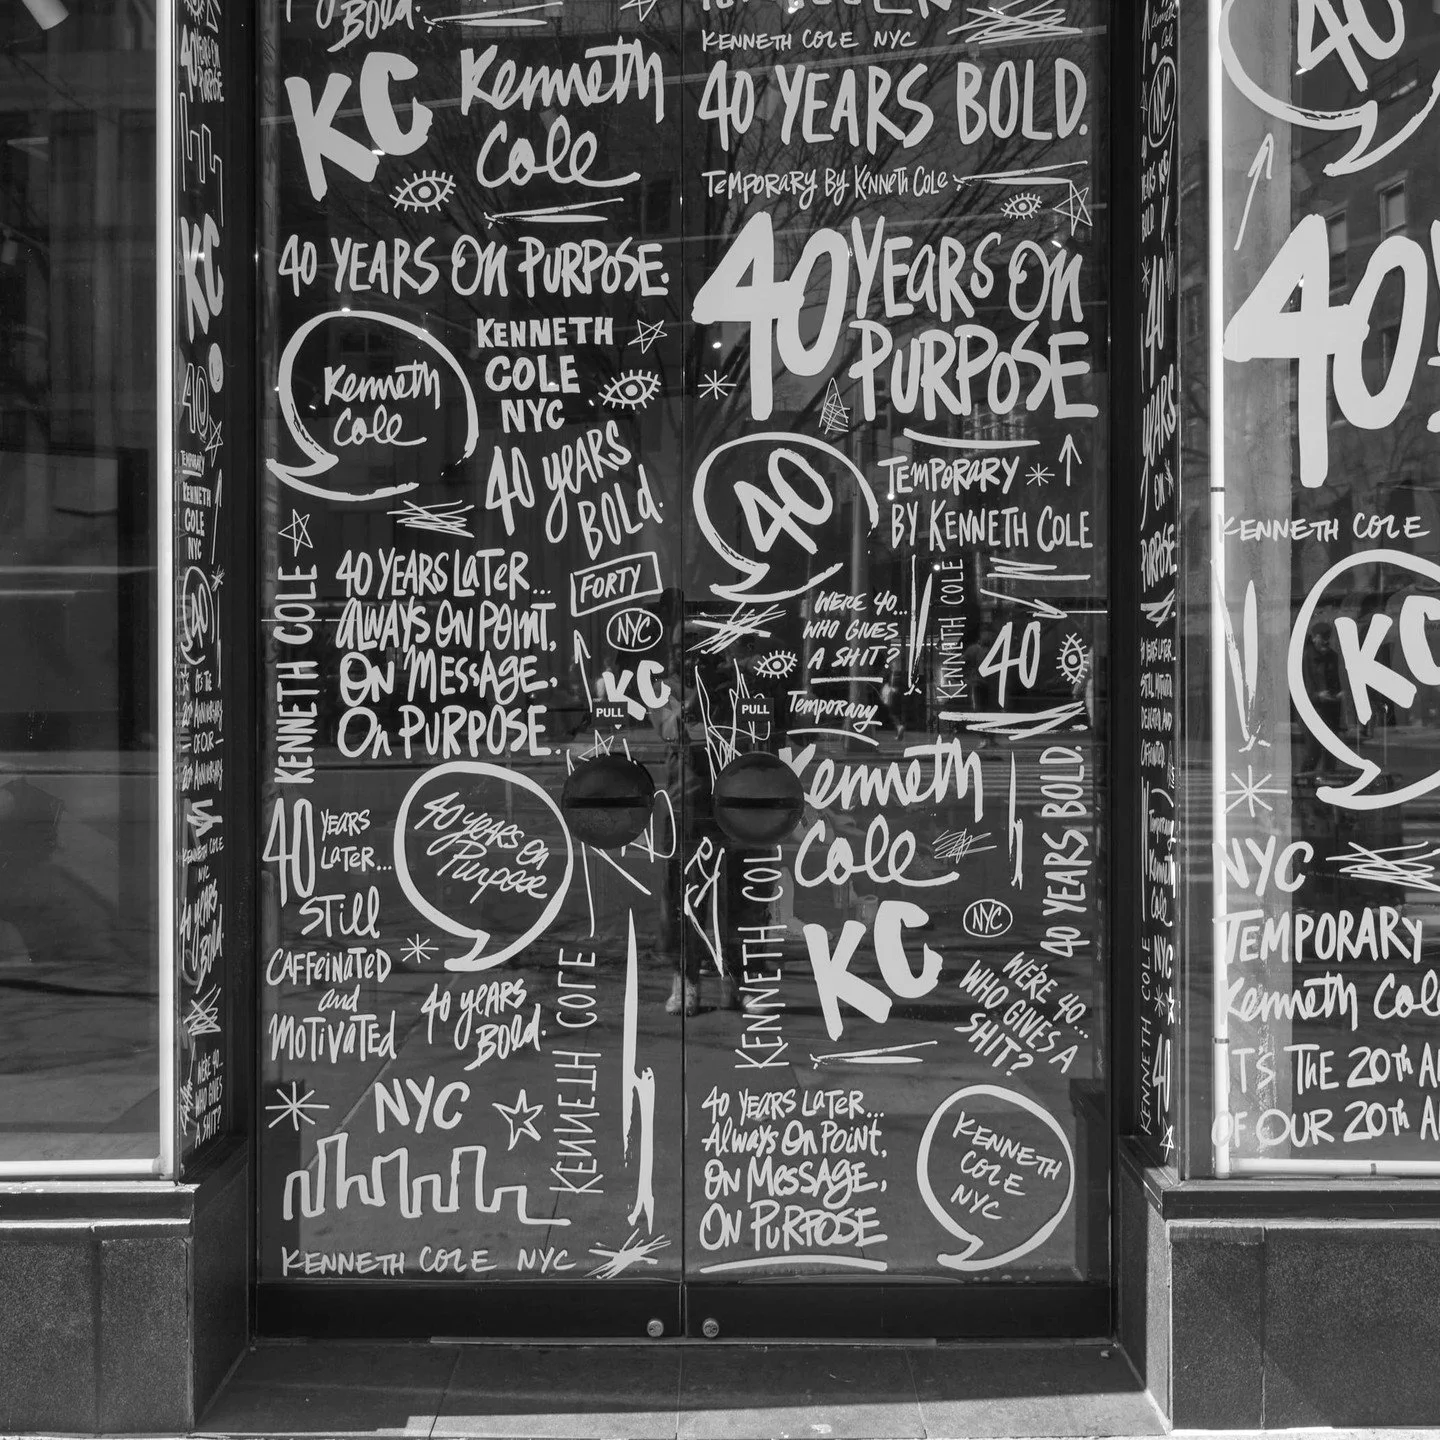 40
YEARS ON
PURPOSE
KC
KENNETH
COLE
NYC
40
IT'S THE
20TH ANNIVERSARY
OF OUR
20TH ANNIVERSARY
KENNETH COLE
NYC
40 YEARS
BOLD.
WE'RE 40...
WHO GIVES
A SHIT?
BOLD.
KC
Kenneth
Cole
40 YEARS ON PURPOSE.
Kenneth
Cole
KENNETH
COLE
NYC
40 YEARS
BOLD.
KENNETH COLE
40 YEARS LATER...
ALWAYS ON POINT,
ON MESSAGE,
On PURPOSE.
FORTY
NYC
KC
PULL
40 YEARS
LATER...
STILL
CAFFEINATED
and
MOTIVATED
40 years on
Purpose
40 YEARS
BOLD.
KENNETH COLE
NYC
KENNETH COLE NYC
KENNETH COLE NYC
40 YEARS BOLD.
TEMPORARY BY KENNETH COLE
40 YEARS ON
PURPOSE
40
TEMPORARY
BY KENNETH COLE
WERE 40...
WHO GIVES
A SHIT?
KENNETH COLE
40
PULL
Temporary
Kenneth
Cole
40 YEARS BOLD.
KENNETH COL
KC
NYC
WE'RE 40...
WHO GIVES A
SHIT?
40 YEARS LATER...
Always On Point,
ON MESSAGE,
ON PURPOSE
KENNETH
COLE
NYC
NYC
40
YEARS
ON
PURPOSE
KENNETH COLE
NYC
40
40
40
KENNETH COLE
KC
NYC
TEMPORARY
Kenneth Col
IT'S THE 20TH A
OF OUR 20TH A